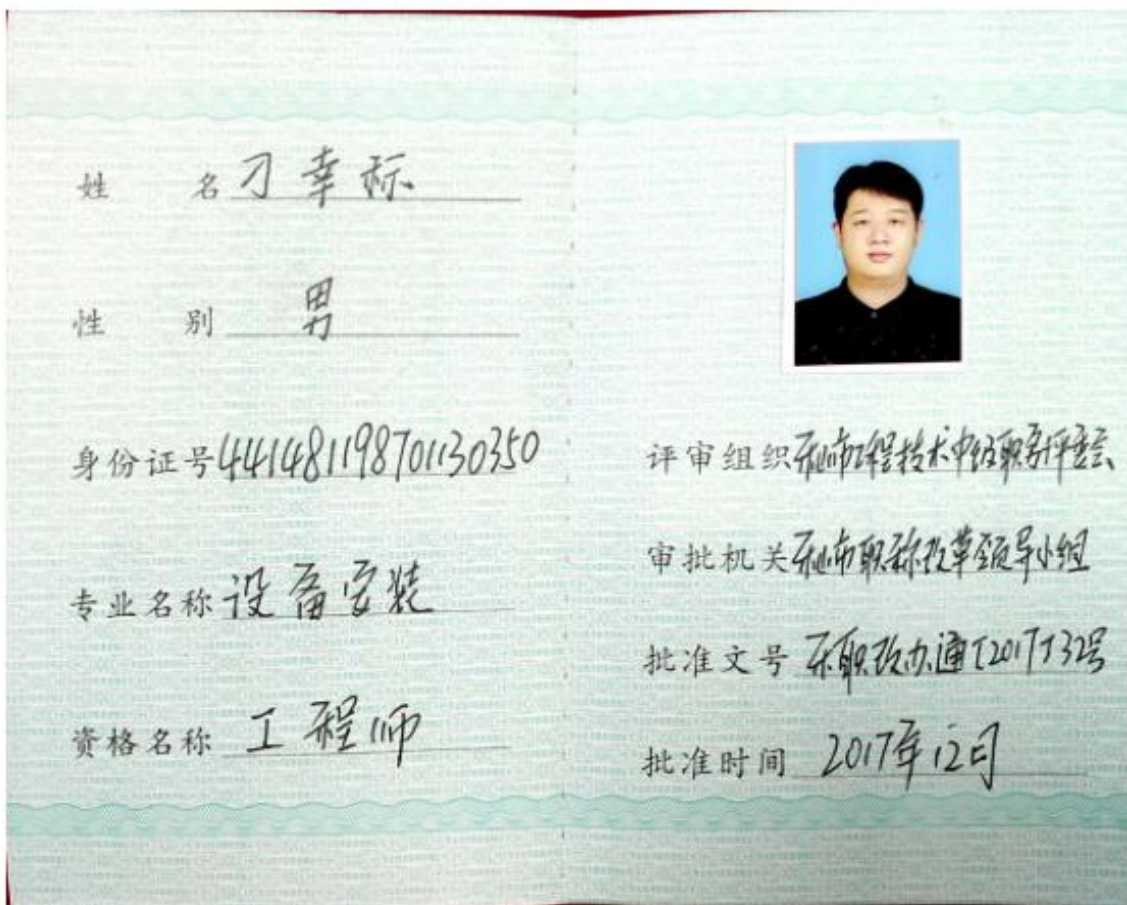 姓 名 刁幸标
性 别 男
身份证号 441481198701130350
专业名称 设备安装
资格名称 工程师
评审组织 乐山市工程技术中级职务评委会
审批机关 乐山市职称改革领导小组
批准文号 乐职改办通〔2017〕32号
批准时间 2017年12月